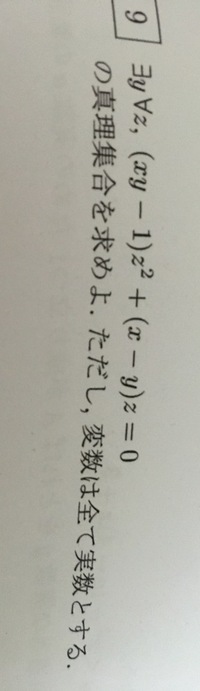 9 ∃y∀z, (xy − 1)z² + (x − y)z = 0
の真理集合を求めよ．ただし，変数は全て実数とする．